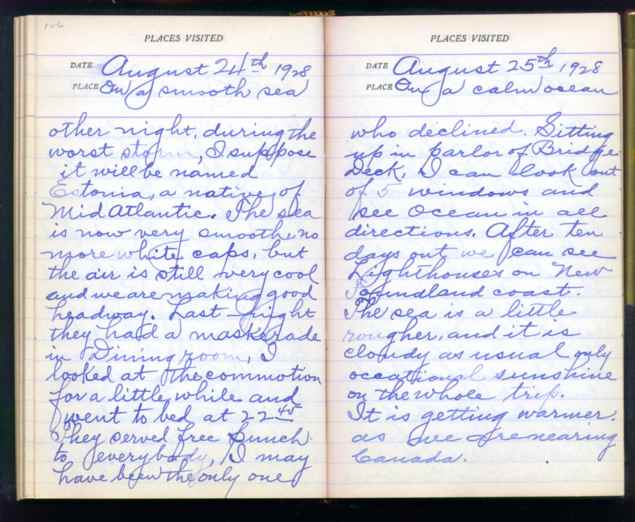 106
PLACES VISITED
DATE August 24th 1928
PLACE On a smooth sea
other night, during the
worst storm, I suppose
it will be named
Estonia, a native of
Mid Atlantic. The sea
is now very smooth, no
more white caps, but
the air is still very cool
and we are making good
headway. Last night
they had a maskerade
in Dining room, I
looked at the commotion
for a little while and
went to bed at 22 45
They served free punch
to everybody, I may
have been the only one
PLACES VISITED
DATE August 25th, 1928
PLACE On a calm ocean
who declined. Sitting
up in parlor of Bridge
Deck, I can look out
of 5 windows and
see Ocean in all
directions. After ten
days out we can see
Lighthouses on New
Foundland coast.
The sea is a little
rougher, and it is
cloudy as usual only
occational sunshine
on the whole trip.
It is getting warmer
as we are nearing
Canada.